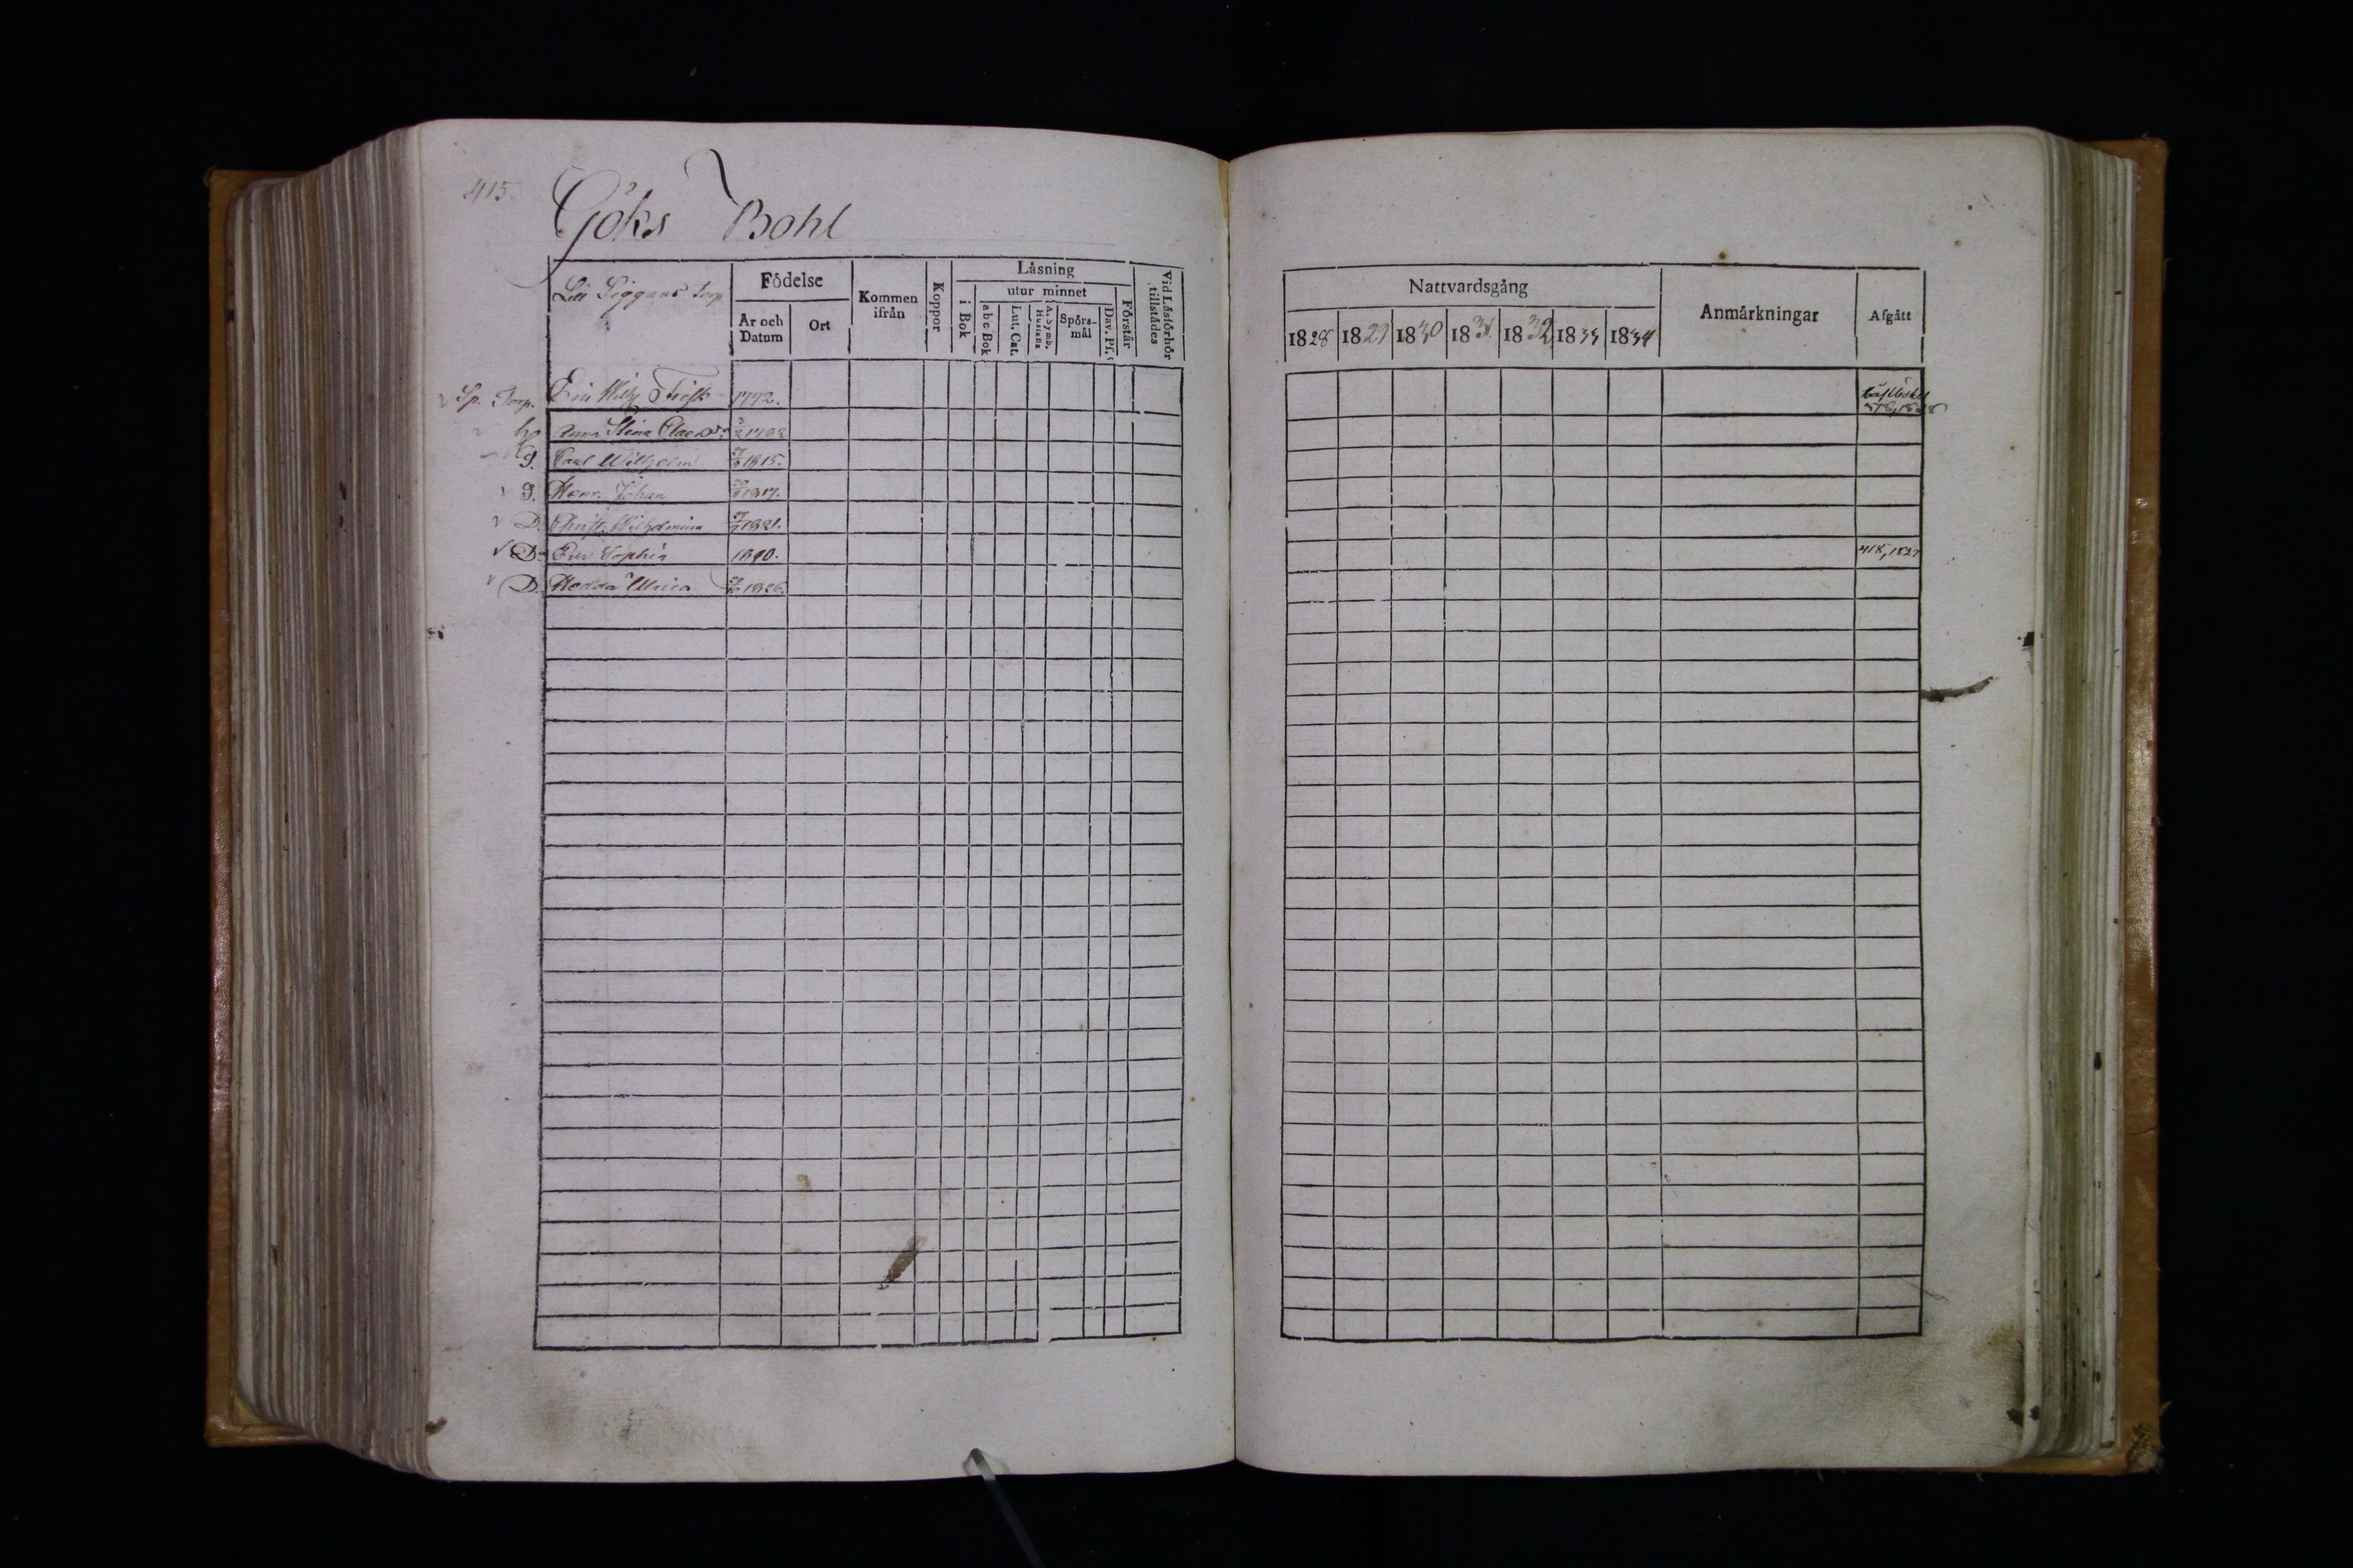 415.
Göks Bohl
Lill Siggans torp
Födelse
År och Datum
Ort
Kommen ifrån
Koppor
Läsning
utur minnet
i Bok
a b c Bok
Lut. Cat.
A. Symb.
Spörs-mål
Dav. Ps.
Förstår
Vid Läsförhör tillstådes
Nattvardsgång
1828 1829 1830 1831 1832 1833 1834
Anmärkningar
Afgått
Sp. Torp. 1772.
1828
h. Anna Stina
S. Carl Wilhelm 1815.
S. Henr. Johan 1817.
D. Christ. Wilhelmina 1821.
D. Eva Sophia 418, 1827
D. Hedda Ulrica 1826.